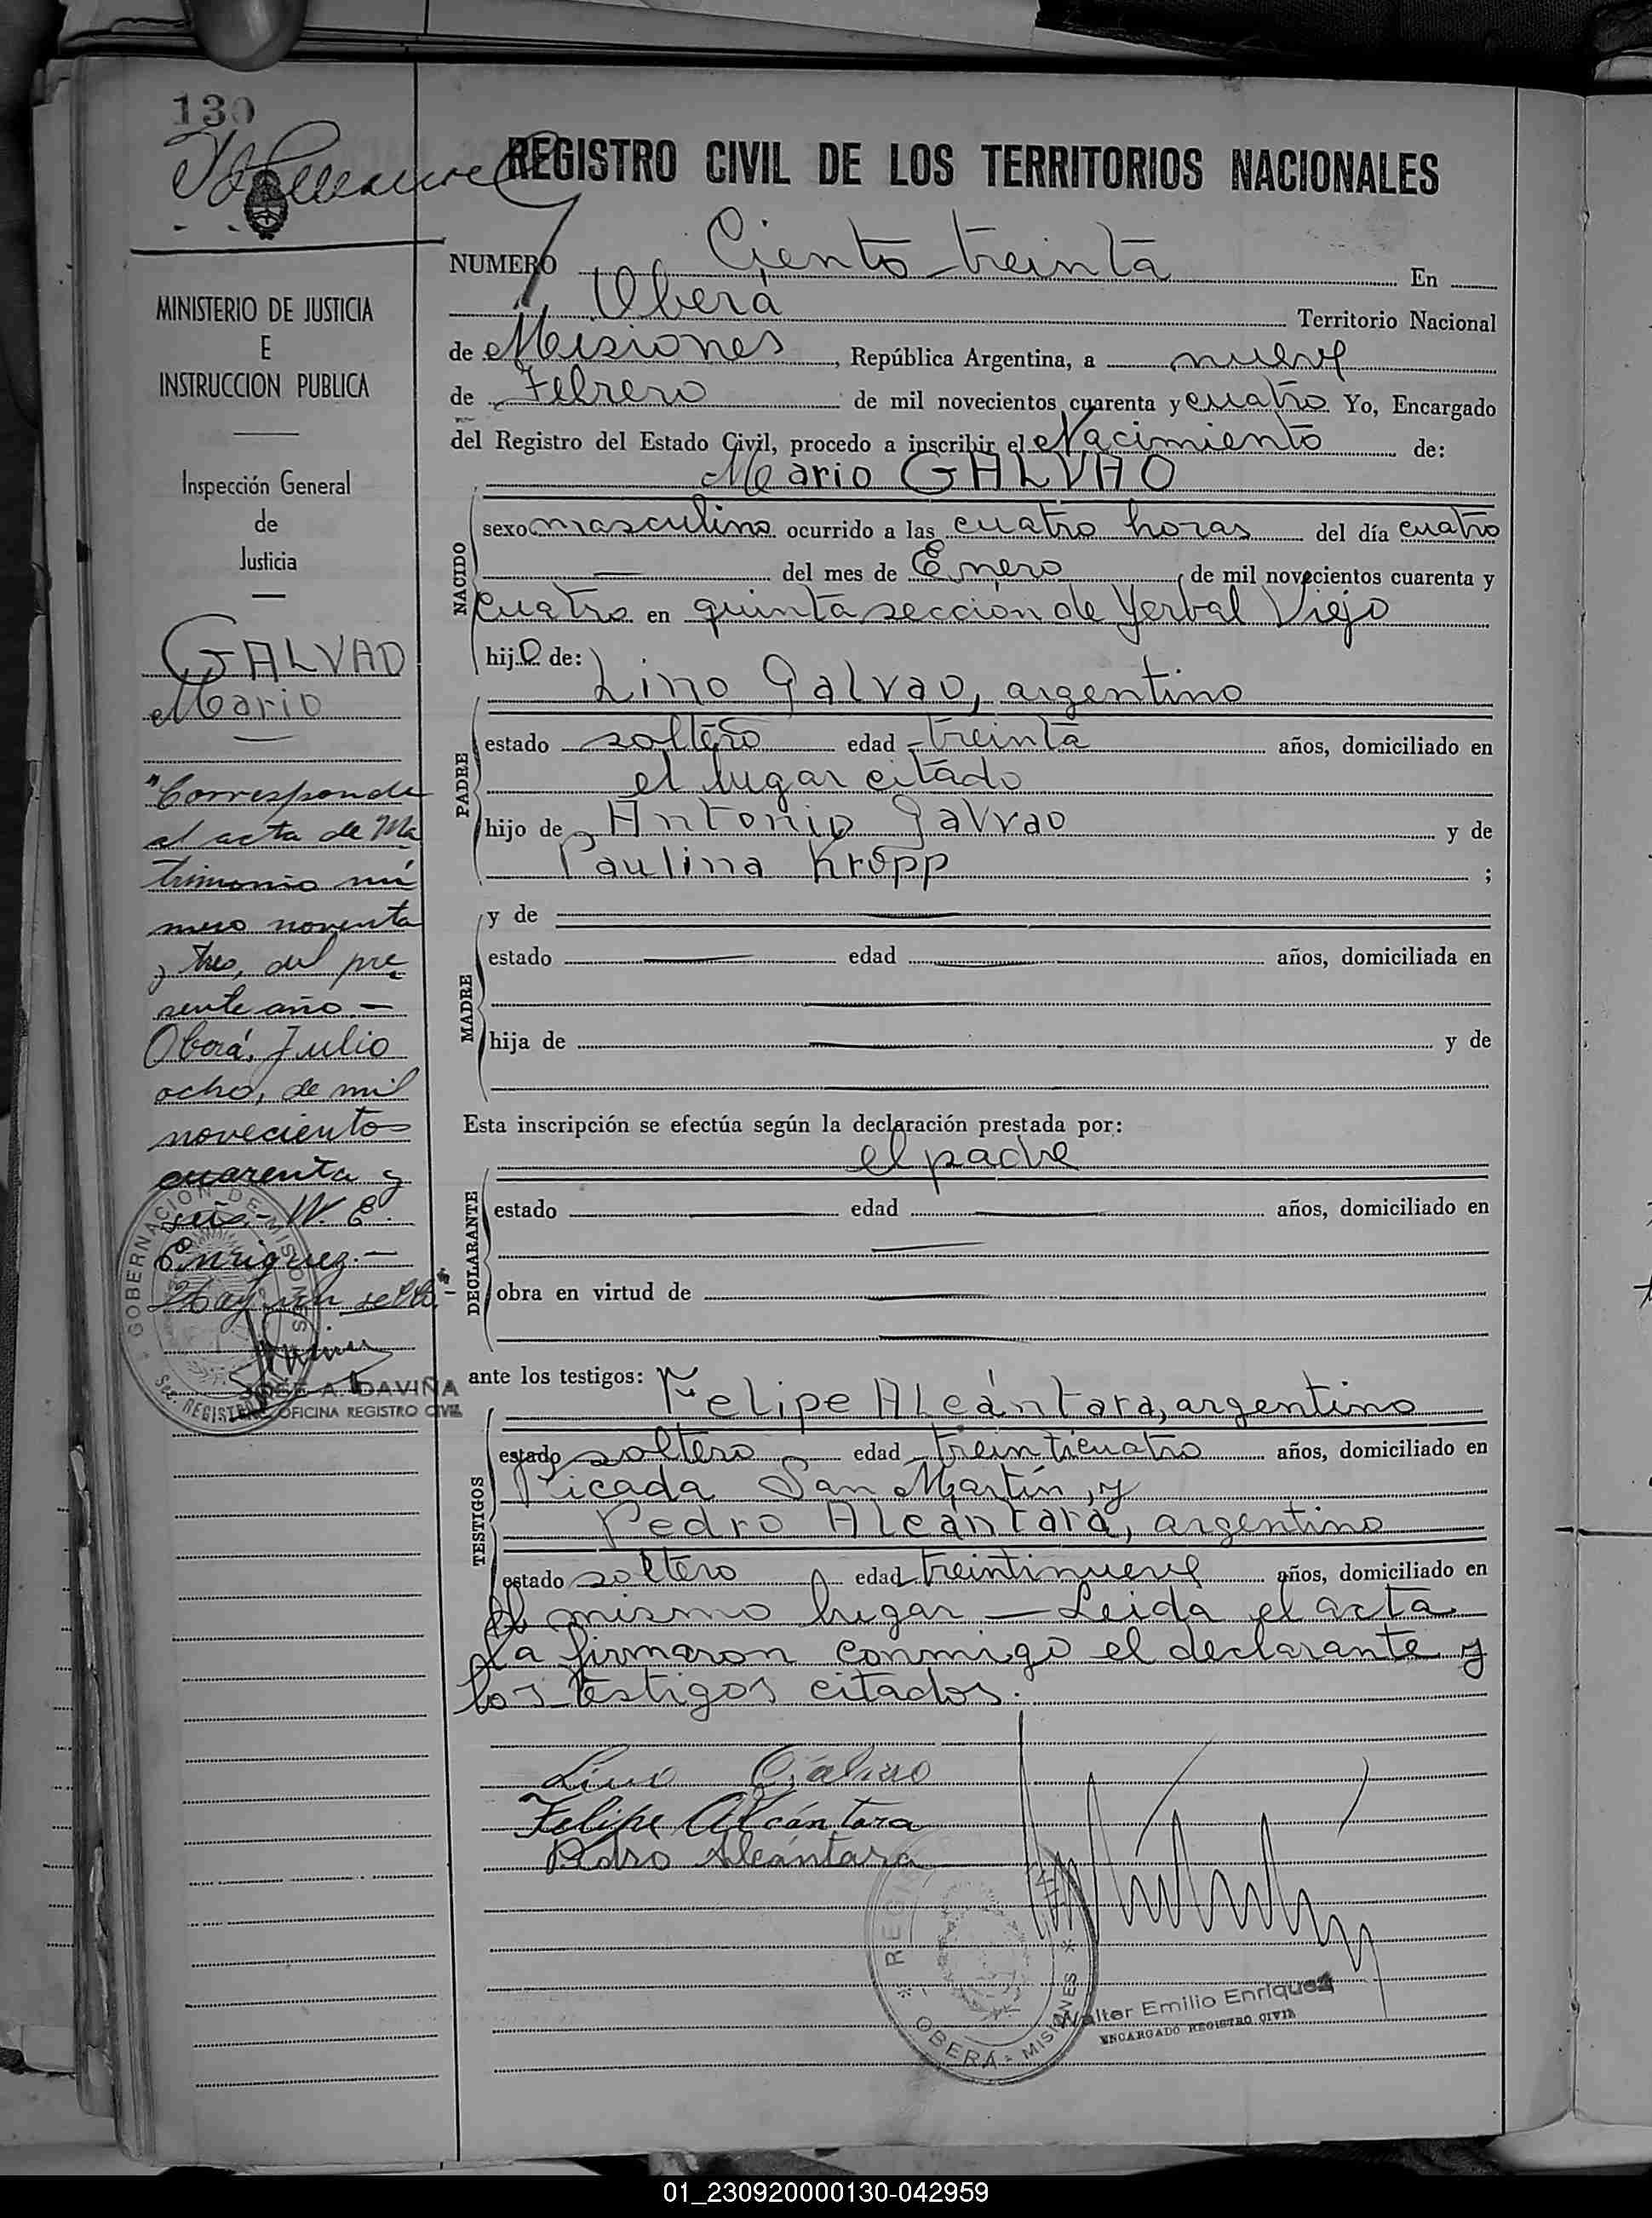 130
REGISTRO CIVIL DE LOS TERRITORIOS NACIONALES
MINISTERIO DE JUSTICIA
E
INSTRUCCION PUBLICA
Inspección General
de
Justicia
GALVAO
Mario
"Corresponde
al acta de Ma
trimonio nú
mero noventa
y tres, del pre
sente año.-
Oberá, Julio
ocho, de mil
novecientos
cuarenta y
seis.- W. E.
Enriquez.-
Hay un sello"-
GOBERNACION DE MISIONES
Sec. REGISTRO
JOSÉ A. DAVIÑA
OFICINA REGISTRO CIVIL
NUMERO Ciento treinta En
Oberá Territorio Nacional
de Misiones, República Argentina, a nueve
de Febrero de mil novecientos cuarenta y cuatro Yo, Encargado
del Registro del Estado Civil, procedo a inscribir el Nacimiento de:
Mario GALVAO
NACIDO
sexo masculino ocurrido a las cuatro horas del día cuatro
del mes de Enero, de mil novecientos cuarenta y
cuatro en quinta sección de Yerbal Viejo
hijo de:
Lino Galvao, argentino
PADRE
estado soltero edad treinta años, domiciliado en
el lugar citado
hijo de Antonio Galvao y de
Paulina Kropp ;
MADRE
y de
estado edad años, domiciliada en
hija de y de
Esta inscripción se efectúa según la declaración prestada por:
el padre
DECLARANTE
estado edad años, domiciliado en
obra en virtud de
ante los testigos: Felipe Alcántara, argentino
TESTIGOS
estado soltero edad treinticuatro años, domiciliado en
Picada San Martín, y
Pedro Alcántara, argentino
estado soltero edad treintinueve años, domiciliado en
el mismo lugar — Leida el acta
la firmaron conmigo el declarante y
los testigos citados.
Lino Galvao
Felipe Alcántara
Pedro Alcántara
OBERÁ - MISIONES
Walter Emilio Enriquez
ENCARGADO REGISTRO CIVIL
01_230920000130-042959